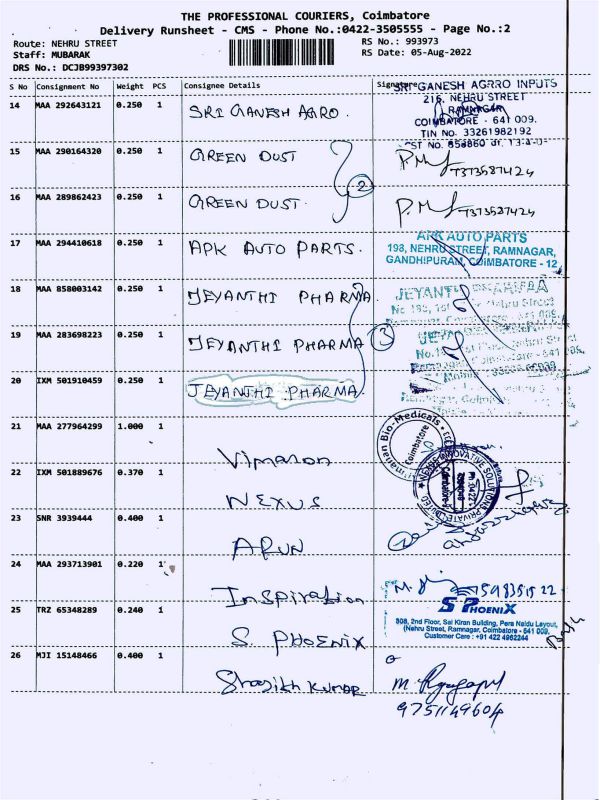 THE PROFESSIONAL COURIERS, Coimbatore
Delivery Runsheet - CMS - Phone No.:0422-3505555 - Page No.:2
Route: NEHRU STREET
RS No.: 993973
Staff: MUBARAK
RS Date: 05-Aug-2022
DRS No.: DCJB99397302
S No Consignment No Weight PCS Consignee Details Signature
SRI GANESH AGRRO INPUTS
216, NEHRU STREET
RAMNAGAR
COIMBATORE - 641 009.
TIN No. 33261982192
14 MAA 292643121 0.250 1 SRI GANESH AGRO.
15 MAA 290164320 0.250 1 GREEN DUST
7373587424
2
16 MAA 289862423 0.250 1 GREEN DUST.
7373587424
17 MAA 294410618 0.250 1 APK AUTO PARTS.
APK AUTO PARTS
198, NEHRU STREET, RAMNAGAR,
GANDHIPURAM, COIMBATORE - 12
18 MAA 858003142 0.250 1 JEYANTHI PHARMA
19 MAA 283698223 0.250 1 JEYANTHI PHARMA
3
20 IXM 501910459 0.250 1 JEYANTHI PHARMA
21 MAA 277964299 1.000 1 Vimaran
Vimaran Bio-Medicals
Coimbatore
22 IXM 501889676 0.370 1 NEXUS
23 SNR 3939444 0.400 1 ARUN
24 MAA 293713901 0.220 1 Inspiration
25 TRZ 65348289 0.240 1 S. PHOENIX
S PHOENIX
808, 2nd Floor, Sai Kiran Building, Pera Naidu Layout,
(Nehru Street, Ramnagar, Coimbatore - 641 009.
Customer Care : +91 422 4962244
26 MJI 15148466 0.400 1 Shasikh Kumar
9751149604